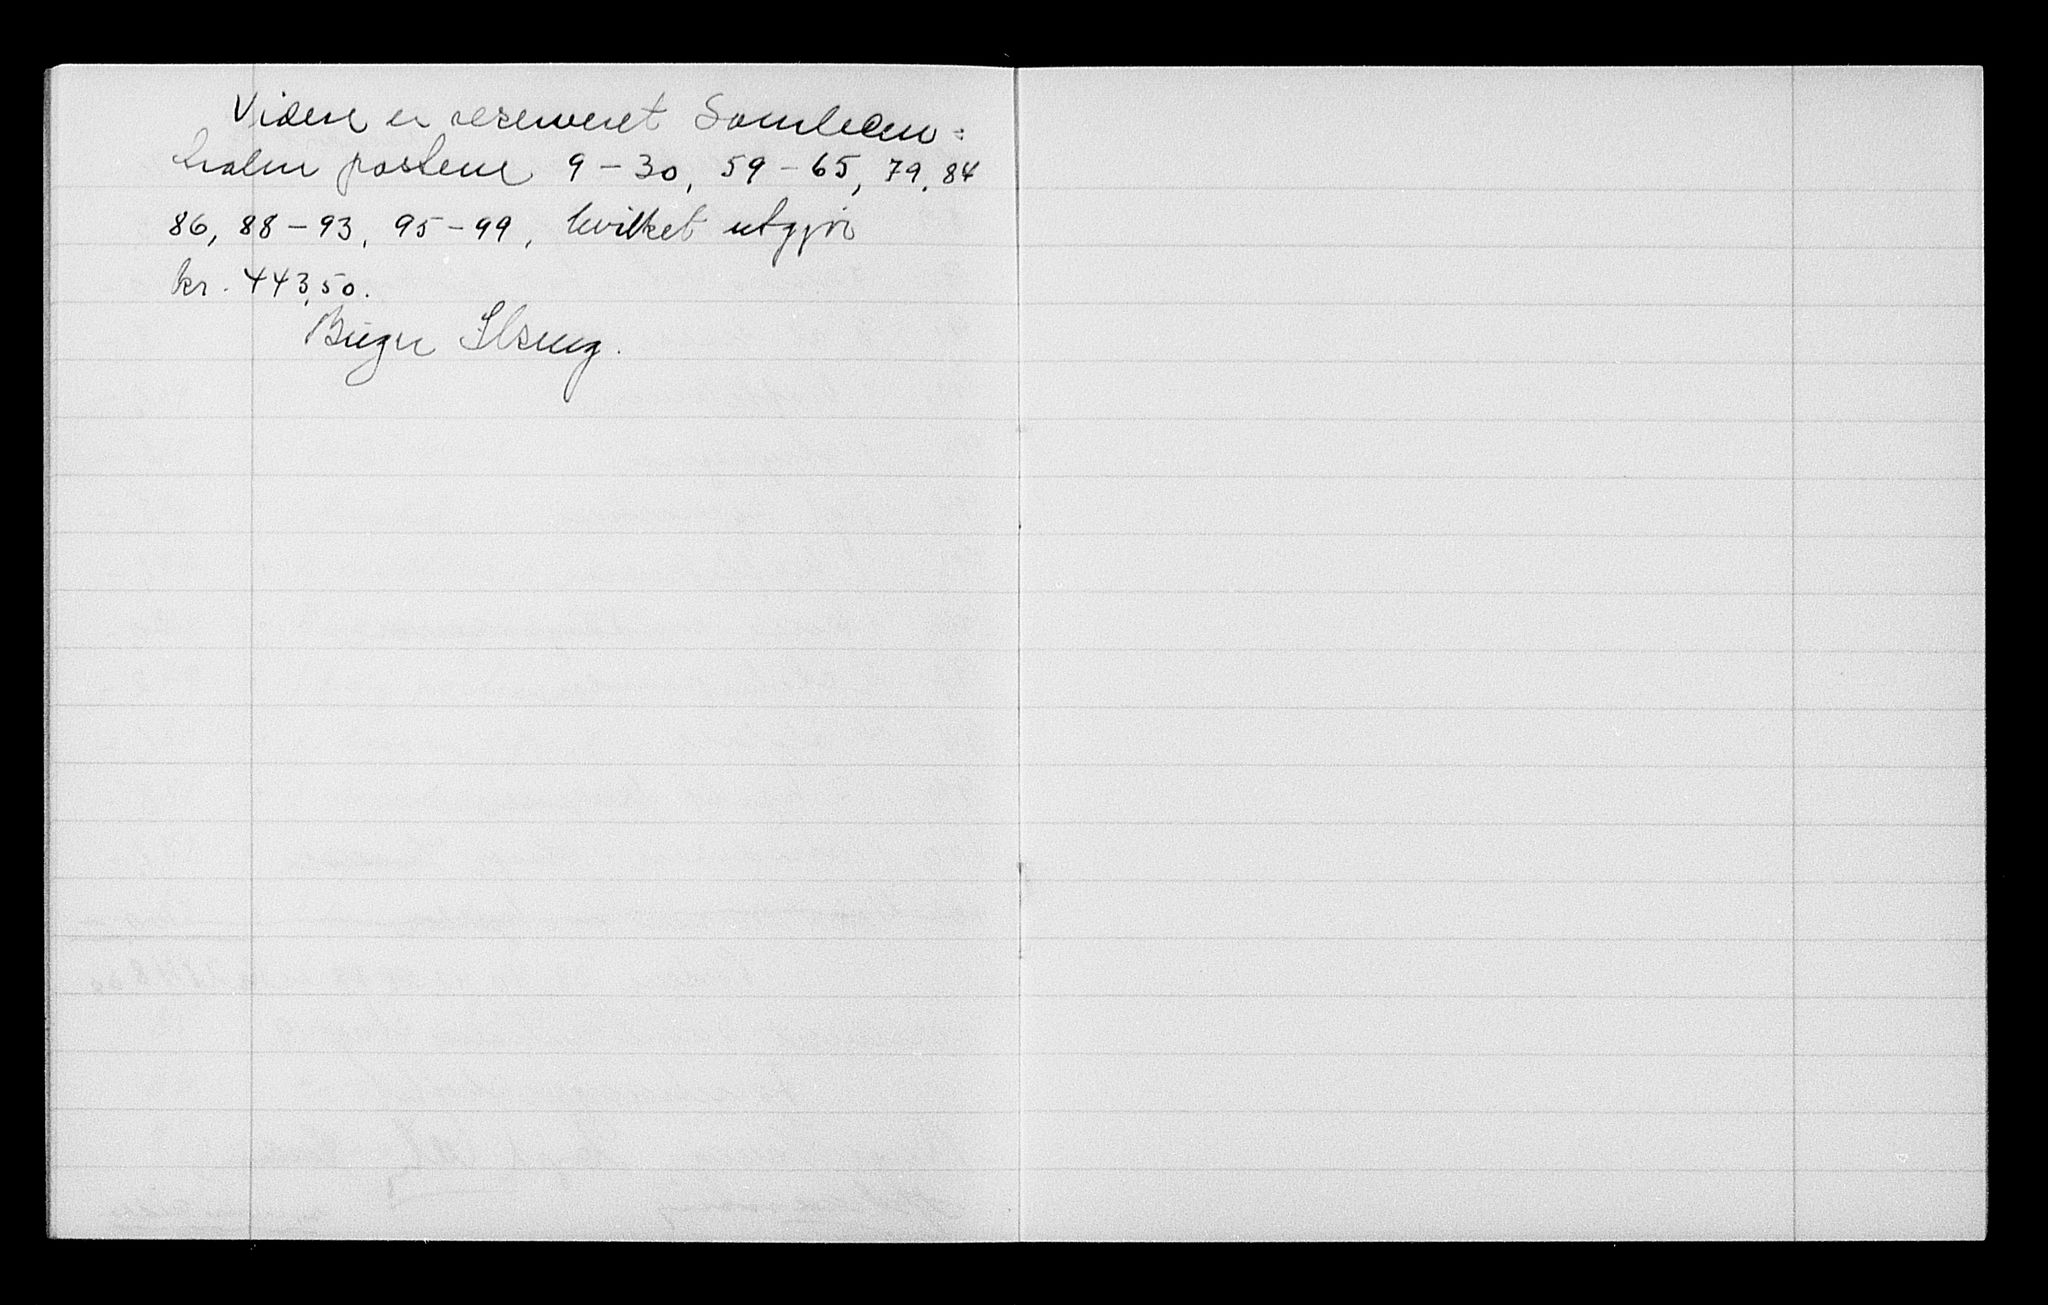 Videre er reserveret Samleien=
holm postene 9-30, 59-65, 79, 84
86, 88-93, 95-99, hvilket utgjør
kr. 443,50.
Birger Ilseng.